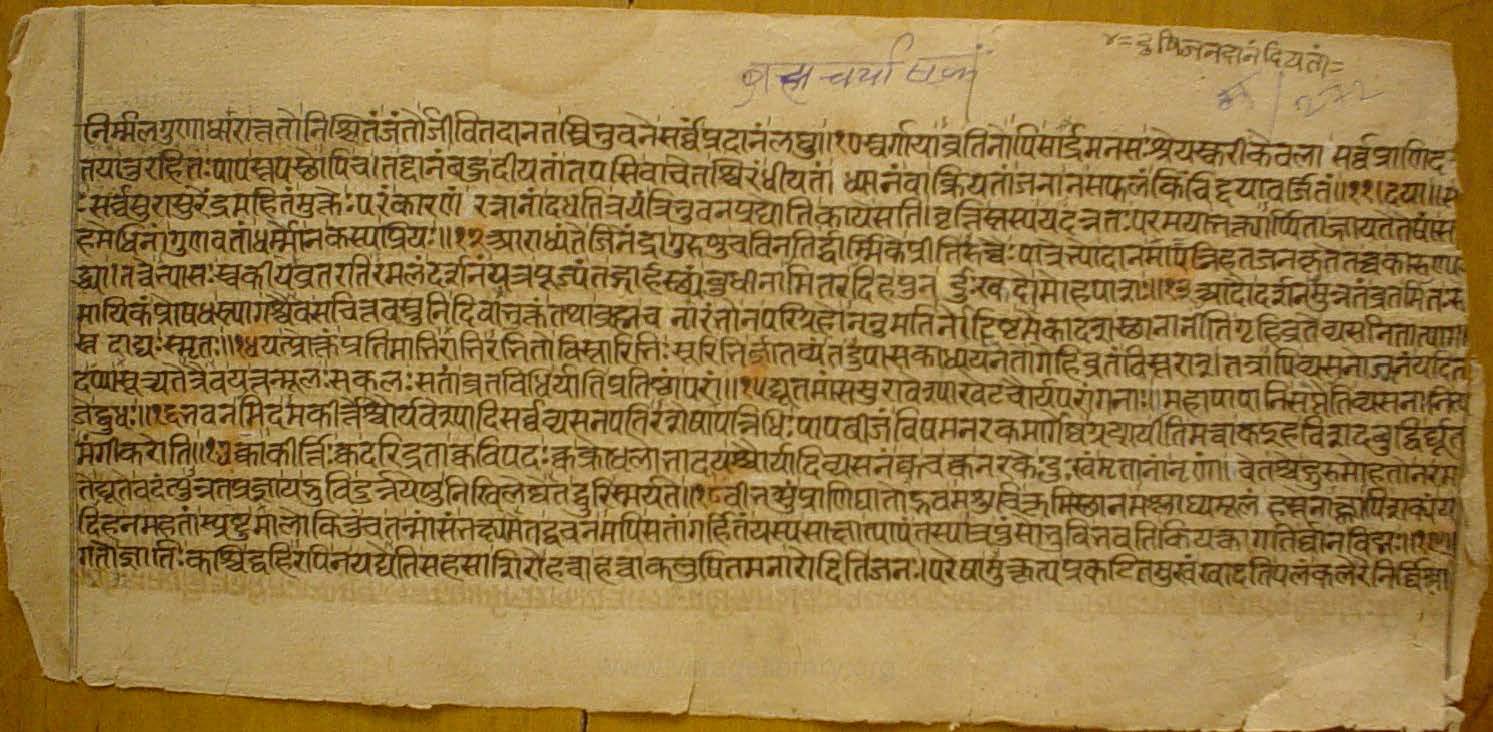 निर्म्मलगुणाधारात्ततो निश्चितं जंतोर्जीवितदानतस्त्रिभुवने सर्व्वप्रदानं लघु॥१० स्वर्गायाव्रतिनोपि सार्द्रमनसः श्रेयस्करी केवला सर्व्वप्राणिद
तया तु रहितः पापस्तपस्छोपि च। तद्दानं बहु दीयतां तपसि वा चेतश्चिरं धीयतां ध्यानं वा क्रियतां जना न सफलं किंचिद्दयावर्जितं॥११।
सर्व्वसुरासुरेंद्रमहितं मुक्तेः परं कारणं रत्नानां दधति त्रयं त्रिभुवनप्रद्योति काये सति। वृत्तिस्तस्य यदन्नतः परमया भक्त्यार्पिताज्जायते तेषां स
हमधिनां गुणवतां धर्म्मो न कस्य प्रियः॥१२ आराध्यंते जिनेंद्रा गुरुषु च विनतिर्द्धार्म्मिके प्रीतिरुच्चैः पात्रेभ्यो दानमापन्निहतजनकृते तच्च कारुण्यबु
द्ध्या। तत्त्वेभ्यासः स्वकीयव्रतरतिरमलं दर्शनं यत्र पूज्यं तद्गार्हस्थ्यं बुधानामितरदिह पुनर्दुःखदो मोहपाशः॥१३ आदौ दर्शनमुन्नतं व्रतमितः सा
मायिकं प्रोषधस्त्यागश्चैव सचित्तवस्तुनि दिवाभुक्तं तथा ब्रह्म च नारंभो न परिग्रहो ननुमतिर्नोद्दिष्टमेकादश स्थानानीति गृहिव्रते व्यसनितात्याग
स्तदाद्यः स्मृतः॥१४ यत्प्रोक्तं प्रतिमाभिराभिरभितो विस्तारिभिः सूरिभिर्ज्ञातव्यं तदुपासकाध्ययनतो गेहिव्रतं विस्तरात्। तत्रापि व्यसनोज्झनं यदि त
दप्यासूत्र्यतेत्रैव यत्तन्मूलः सकलः सतां व्रतविधिर्याति प्रतिष्ठां परां॥१५ द्यूतमांससुरावेश्याखेटचौर्यपरांगनाः। महापापानि सप्तेति व्यसनानि त्य
जेद्बुधः॥१६ भवनमिदमकीर्त्तेश्चौर्यवेश्यादिसर्व्वव्यसनपतिरशेषापन्निधिः पापबीजं विषमनरकमार्गेष्वग्रयायीति मत्वा क इह विशदबुद्धिर्द्यूत
मंगीकरोति॥१७ क्वाकीर्त्तिः क्व दरिद्रता क्व विपदः क्व क्रोधलोभादयश्चौर्यादिव्यसनं क्व च क्व नरके दुःखं मृतानां नृणां। चेतश्चेद्गुरुमोहतो न रम
ते द्यूते वदंत्युन्नतप्रज्ञा यद्भुवि दुर्न्नयेषु निखिलेष्वेतद्धुरि स्मर्यते॥१८ बीभत्सुं प्राणिघातोद्भवमशुचि कृमिस्थानमश्लाघ्यमूलं हस्तेनाक्ष्णापि शक्यं य
दिह न महतां स्प्रष्टुमालोकितुं च तन्मांसं भक्ष्यमेतद्वचनमपि सतां गर्हितं यस्य साक्षात्पापं तस्यात्र पुंसो भुवि भवति कियत्का गतिर्वा न विद्मः॥१९
गतो ज्ञातिः कश्चिद्बहिरपि न यद्येति सहसा शिरो हत्वा हत्वा कलुषितमना रोदिति जनः। परेषामुत्कृत्य प्रकटितमुखं खादति पलं कले रे निर्व्विण्णा